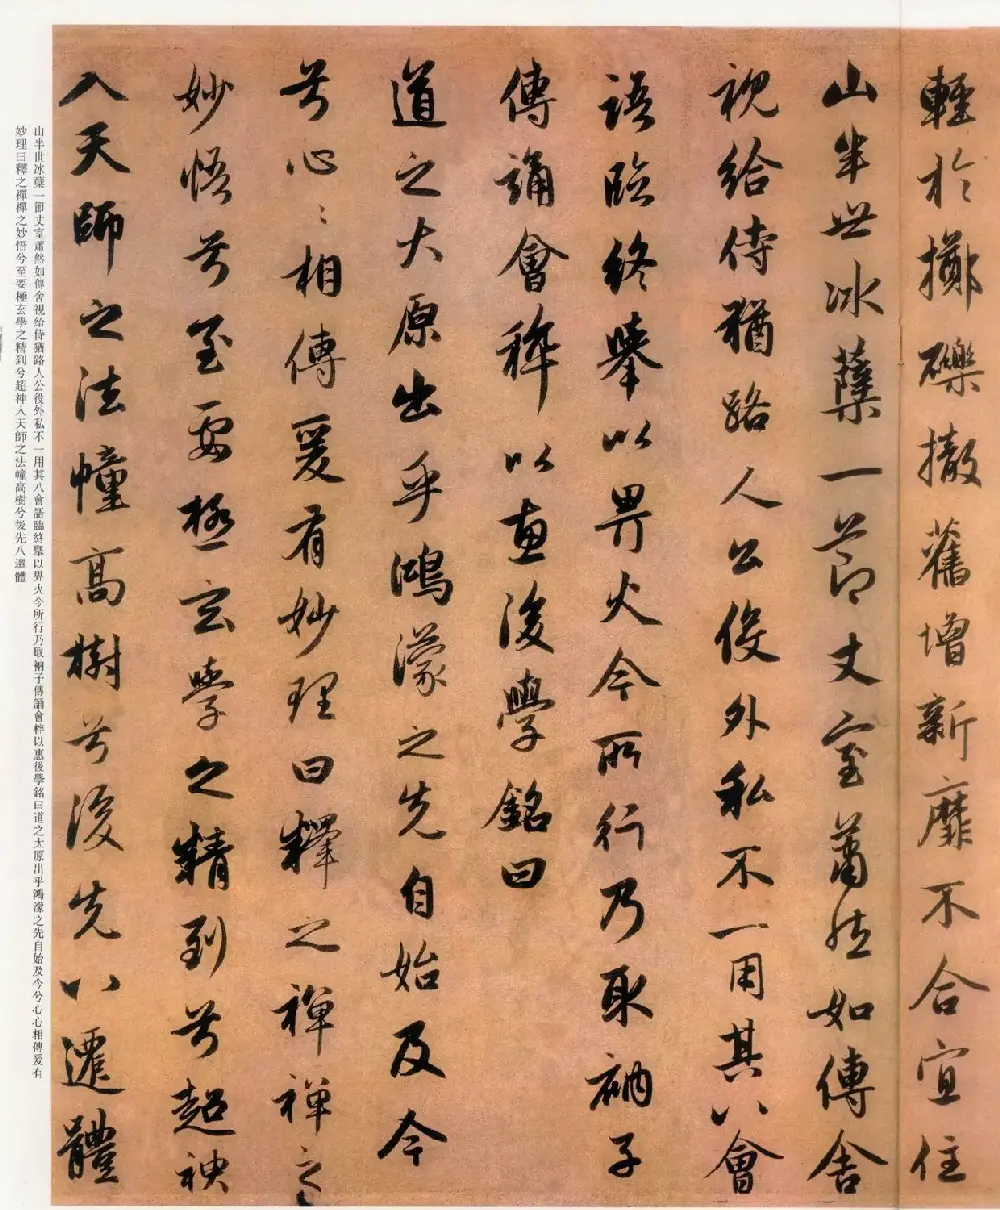 輕於擲礫撤舊增新靡不合宜住
山半世冰蘗一節丈室蕭然如傳舍
視給侍猶路人公役外私不一用其八會
語臨終舉以畀火今所行乃取衲子
傳誦會稡以惠後學銘曰
道之大原出乎鴻濛之先自始及今
兮心〻相傳爰有妙理曰釋之禪禪之
妙悟兮至要極玄學之精到兮超神
入天師之法幢高樹兮後先八遷體
山半世冰蘗一節丈室蕭然如傳舍視給侍猶路人公役外私不一用其八會語臨終舉以畀火今所行乃取衲子傳誦會稡以惠後學銘曰道之大原出乎鴻濛之先自始及今兮心心相傳爰有
妙理曰釋之禪禪之妙悟兮至要極玄學之精到兮超神入天師之法幢高樹兮後先八遷體